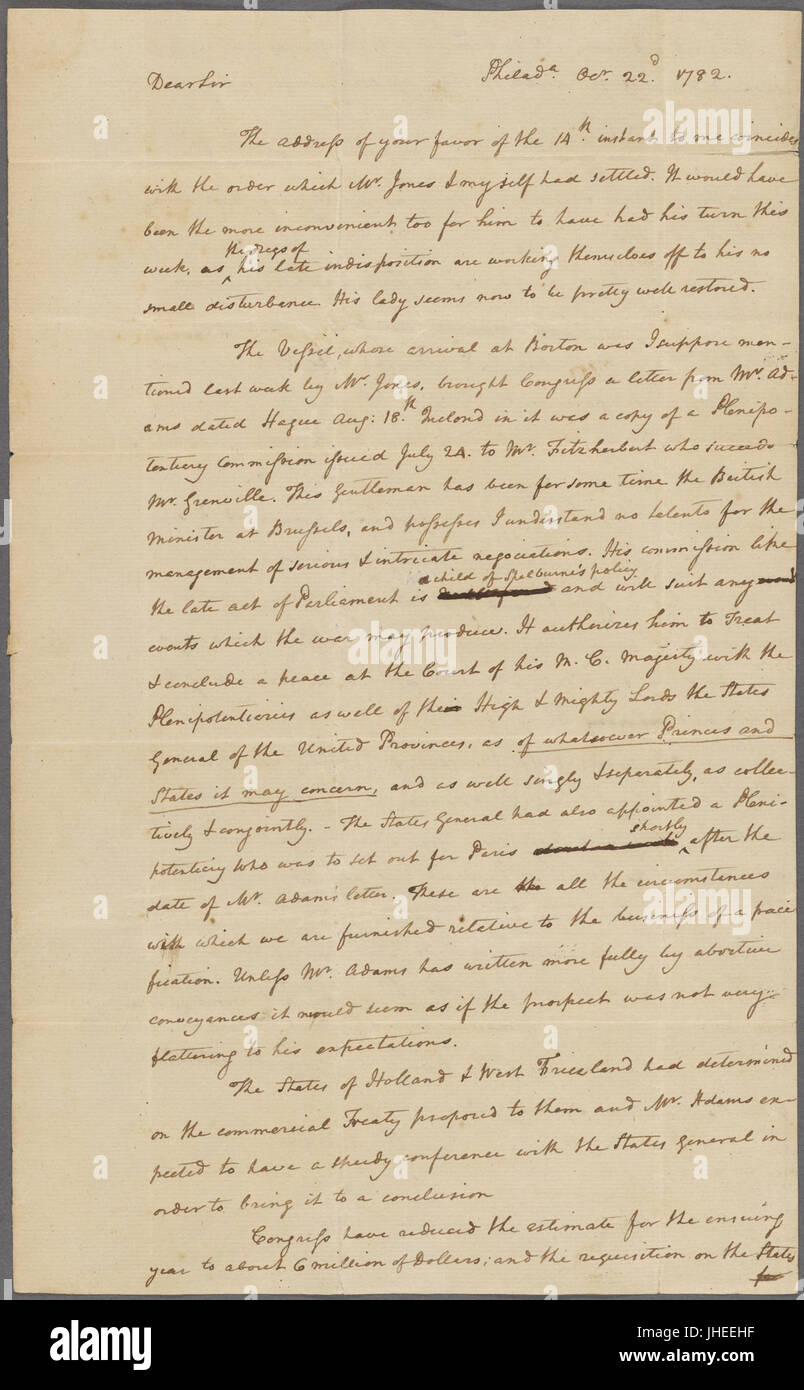 Dear Sir
Philada. Ocr. 22d. 1782.
The address of your favor of the 14th. instant to me coincides
with the order which Mr. Jones & myself had settled. It would have
been the more inconvenient too for him to have had his turn this
the dregs of
week, as ^ his late indisposition are working themselves off to his no
small disturbance. His lady seems now to be pretty well restored.
The Vessel, whose arrival at Boston was I suppose men-
tioned last week by Mr. Jones, brought Congress a letter from Mr. Ad-
ams dated Hague Aug: 18th. Inclosd in it was a copy of a Plenipo-
tentiery Commission issued July 24. to Mr. Fitzherbert who succeeds
Mr. Grenville. This Gentleman has been for some time the British
Minister at Brussels, and possesses I understand no talents for the
management of serious & intricate negociations. His commission like
a child of Shelburne's policy
the late act of Parliament is and will suit any
events which the war may produce. It authorizes him to Treat
& conclude a peace at the Court of his M. C. Majesty with the
Plenipotentiaries as well of their High & Mighty Lords the States
General of the United Provinces, as of whatsoever Princes and
States it may concern, and as well singly & seperately, as collec-
tively & conjointly. - The States General had also appointed a Pleni-
shortly
potentiery who was to set out for Paris ^ after the
date of Mr. Adams letter. These are the all the circumstances
with which we are furnished relative to the business of a paci
fication. Unless Mr. Adams has written more fully by abortive
conveyances it would seem as if the prospect was not very
flattering to his expectations.
The States of Holland & West Friesland had determined
on the commercial Treaty proposed to them and Mr. Adams ex-
pected to have a speedy conference with the States General in
order to bring it to a conclusion
Congress have reduced the estimate for the ensuing
year to about 6 million of Dollars; and the requisition on the States
for
alamy
alamy
alamy
alamy
alamy
alamy
a alamy
Image ID: JHEEHF
www.alamy.com